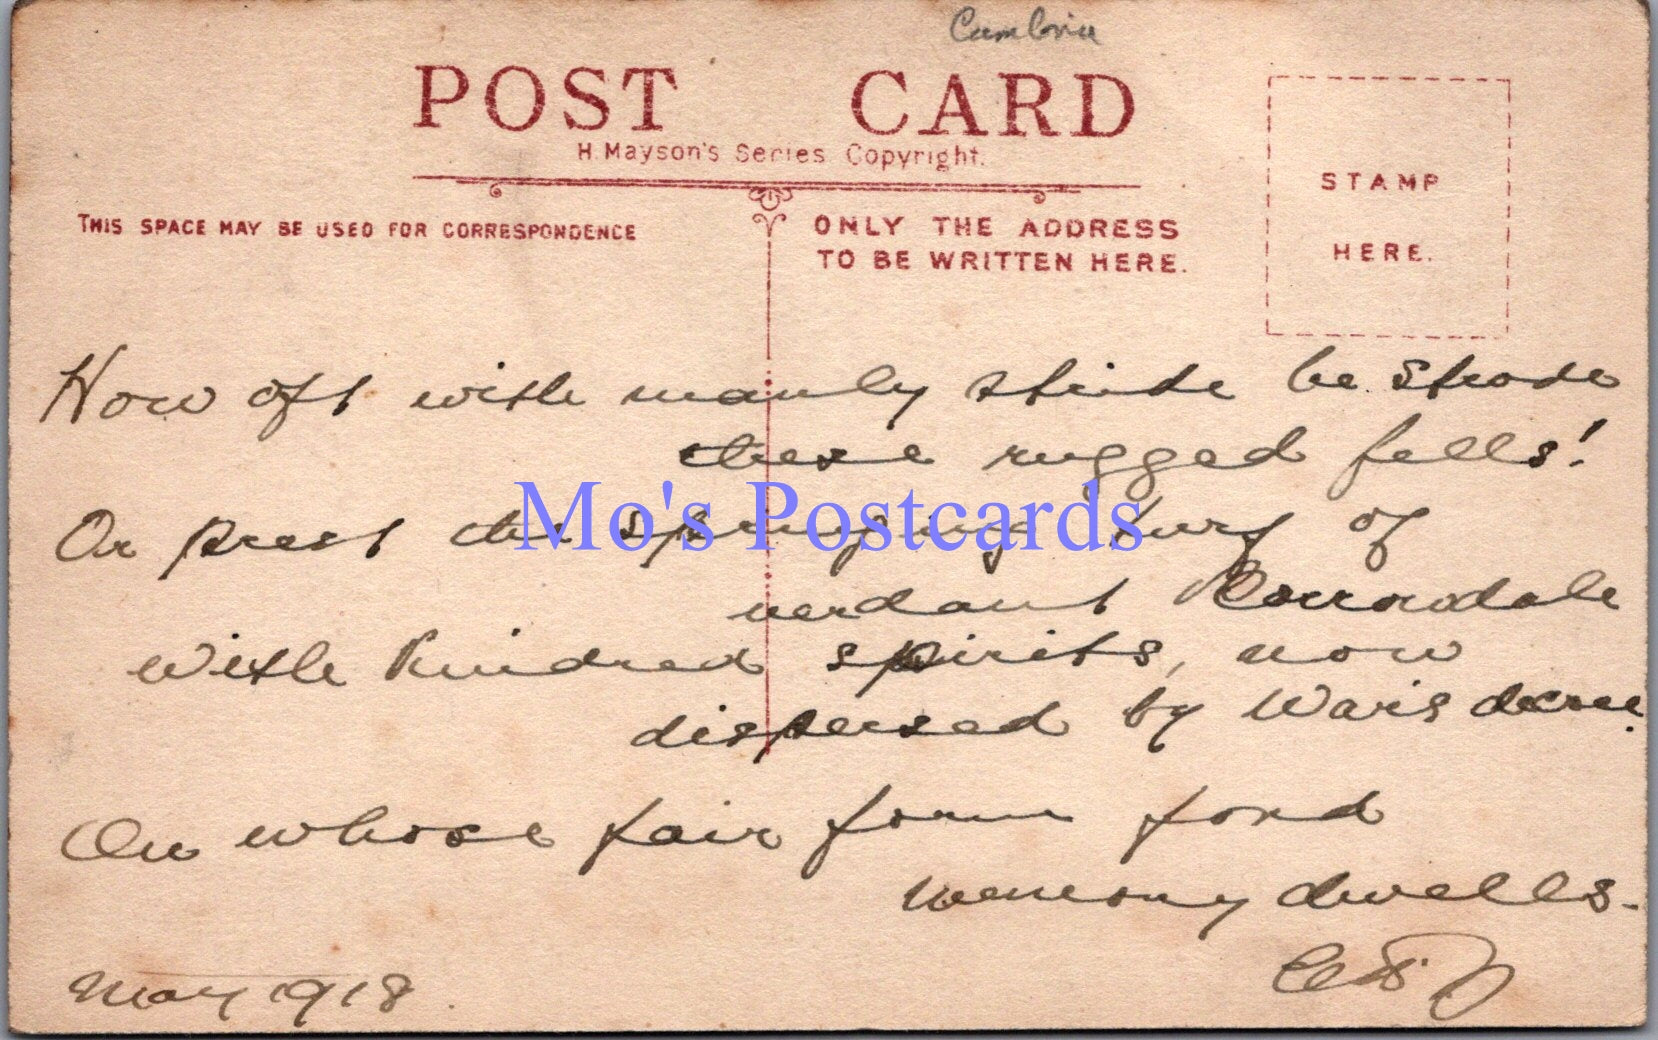 Cumbria
POST CARD
H. Mayson's Series Copyright.
STAMP
HERE.
THIS SPACE MAY BE USED FOR CORRESPONDENCE
ONLY THE ADDRESS
TO BE WRITTEN HERE.
How oft with manly stride he strode
these rugged fells!
Or prest the springing turf of
verdant Borrowdale
With kindred spirits, now
dispersed by War's decree.
On whose fair form fond
memory dwells.
May 1918.
Mo's Postcards